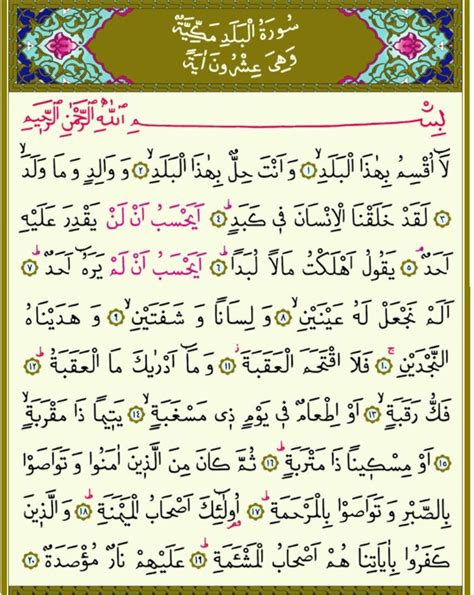 سُورَةُ الْبَلَدِ مَكِّيَّةٌ
وَهِىَ عِشْرُونَ اٰيَةً
بِسْمِ اللّٰهِ الرَّحْمٰنِ الرَّحِيمِ
لَٓا اُقْسِمُ بِهٰذَا الْبَلَدِۙ ﴿١﴾ وَ اَنْتَ حِلٌّ بِهٰذَا الْبَلَدِۙ ﴿٢﴾ وَ وَالِدٍ وَ مَا وَلَدَۙ
﴿٣﴾ لَقَدْ خَلَقْنَا الْاِنْسَانَ فٖى كَبَدٍۜ ﴿٤﴾ اَيَحْسَبُ اَنْ لَنْ يَقْدِرَ عَلَيْهِ
اَحَدٌۢ ﴿٥﴾ يَقُولُ اَهْلَكْتُ مَالًا لُبَدًاۜ ﴿٦﴾ اَيَحْسَبُ اَنْ لَمْ يَرَهُٓ اَحَدٌۜ ﴿٧﴾
اَلَمْ نَجْعَلْ لَهُ عَيْنَيْنِۙ ﴿٨﴾ وَ لِسَانًا وَ شَفَتَيْنِۙ ﴿٩﴾ وَ هَدَيْنَاهُ
النَّجْدَيْنِۚ ﴿١٠﴾ فَلَا اقْتَحَمَ الْعَقَبَةَۘ ﴿١١﴾ وَ مَٓا اَدْرٰيكَ مَا الْعَقَبَةُۜ ﴿١٢﴾
فَكُّ رَقَبَةٍۙ ﴿١٣﴾ اَوْ اِطْعَامٌ فٖى يَوْمٍ ذٖى مَسْغَبَةٍۙ ﴿١٤﴾ يَتٖيمًا ذَا مَقْرَبَةٍۙ
﴿١٥﴾ اَوْ مِسْكٖينًا ذَا مَتْرَبَةٍۜ ﴿١٦﴾ ثُمَّ كَانَ مِنَ الَّذٖينَ اٰمَنُوا وَ تَوَاصَوْا
بِالصَّبْرِ وَ تَوَاصَوْا بِالْمَرْحَمَةِۜ ﴿١٧﴾ اُولٰٓئِكَ اَصْحَابُ الْمَيْمَنَةِۜ ﴿١٨﴾ وَ الَّذٖينَ
كَفَرُوا بِاٰيَاتِنَا هُمْ اَصْحَابُ الْمَشْـَٔمَةِۜ ﴿١٩﴾ عَلَيْهِمْ نَارٌ مُؤْصَدَةٌ ﴿٢٠﴾